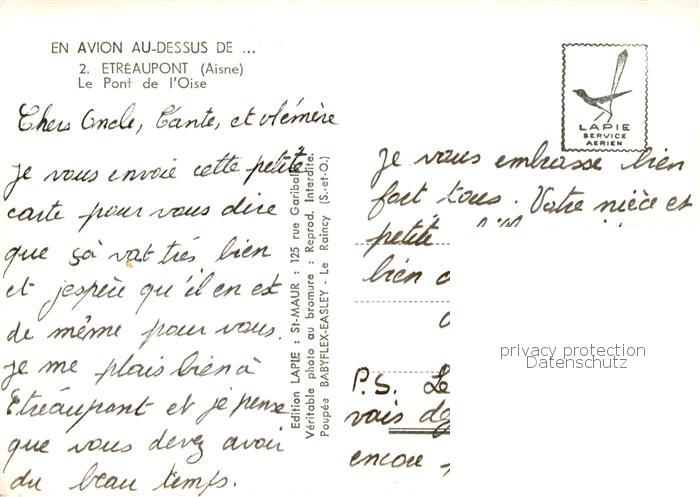 EN AVION AU-DESSUS DE ...
2. ETRÉAUPONT (Aisne)
Le Pont de l'Oise
LAPIE
SERVICE
AERIEN
Chers Oncle, Tante, et Mémère
Je vous envoie cette petite
carte pour vous dire
que çà vat très bien
et j'espère qu'il en est
de même pour vous.
Je me plais bien à
Etréaupont et je pense
que vous devez avoir
du beau temps.
Edition LAPIE : St-MAUR : 125 rue Garibaldi
Véritable photo au bromure : Reprod. Interdite.
Poupée BABYFLEX-EASLEY - Le Raincy (S.-et-O.)
Je vous embrasse bien
fort tous. Votre nièce et
petite
bien
P.S. Le
vais
encore
privacy protection
Datenschutz